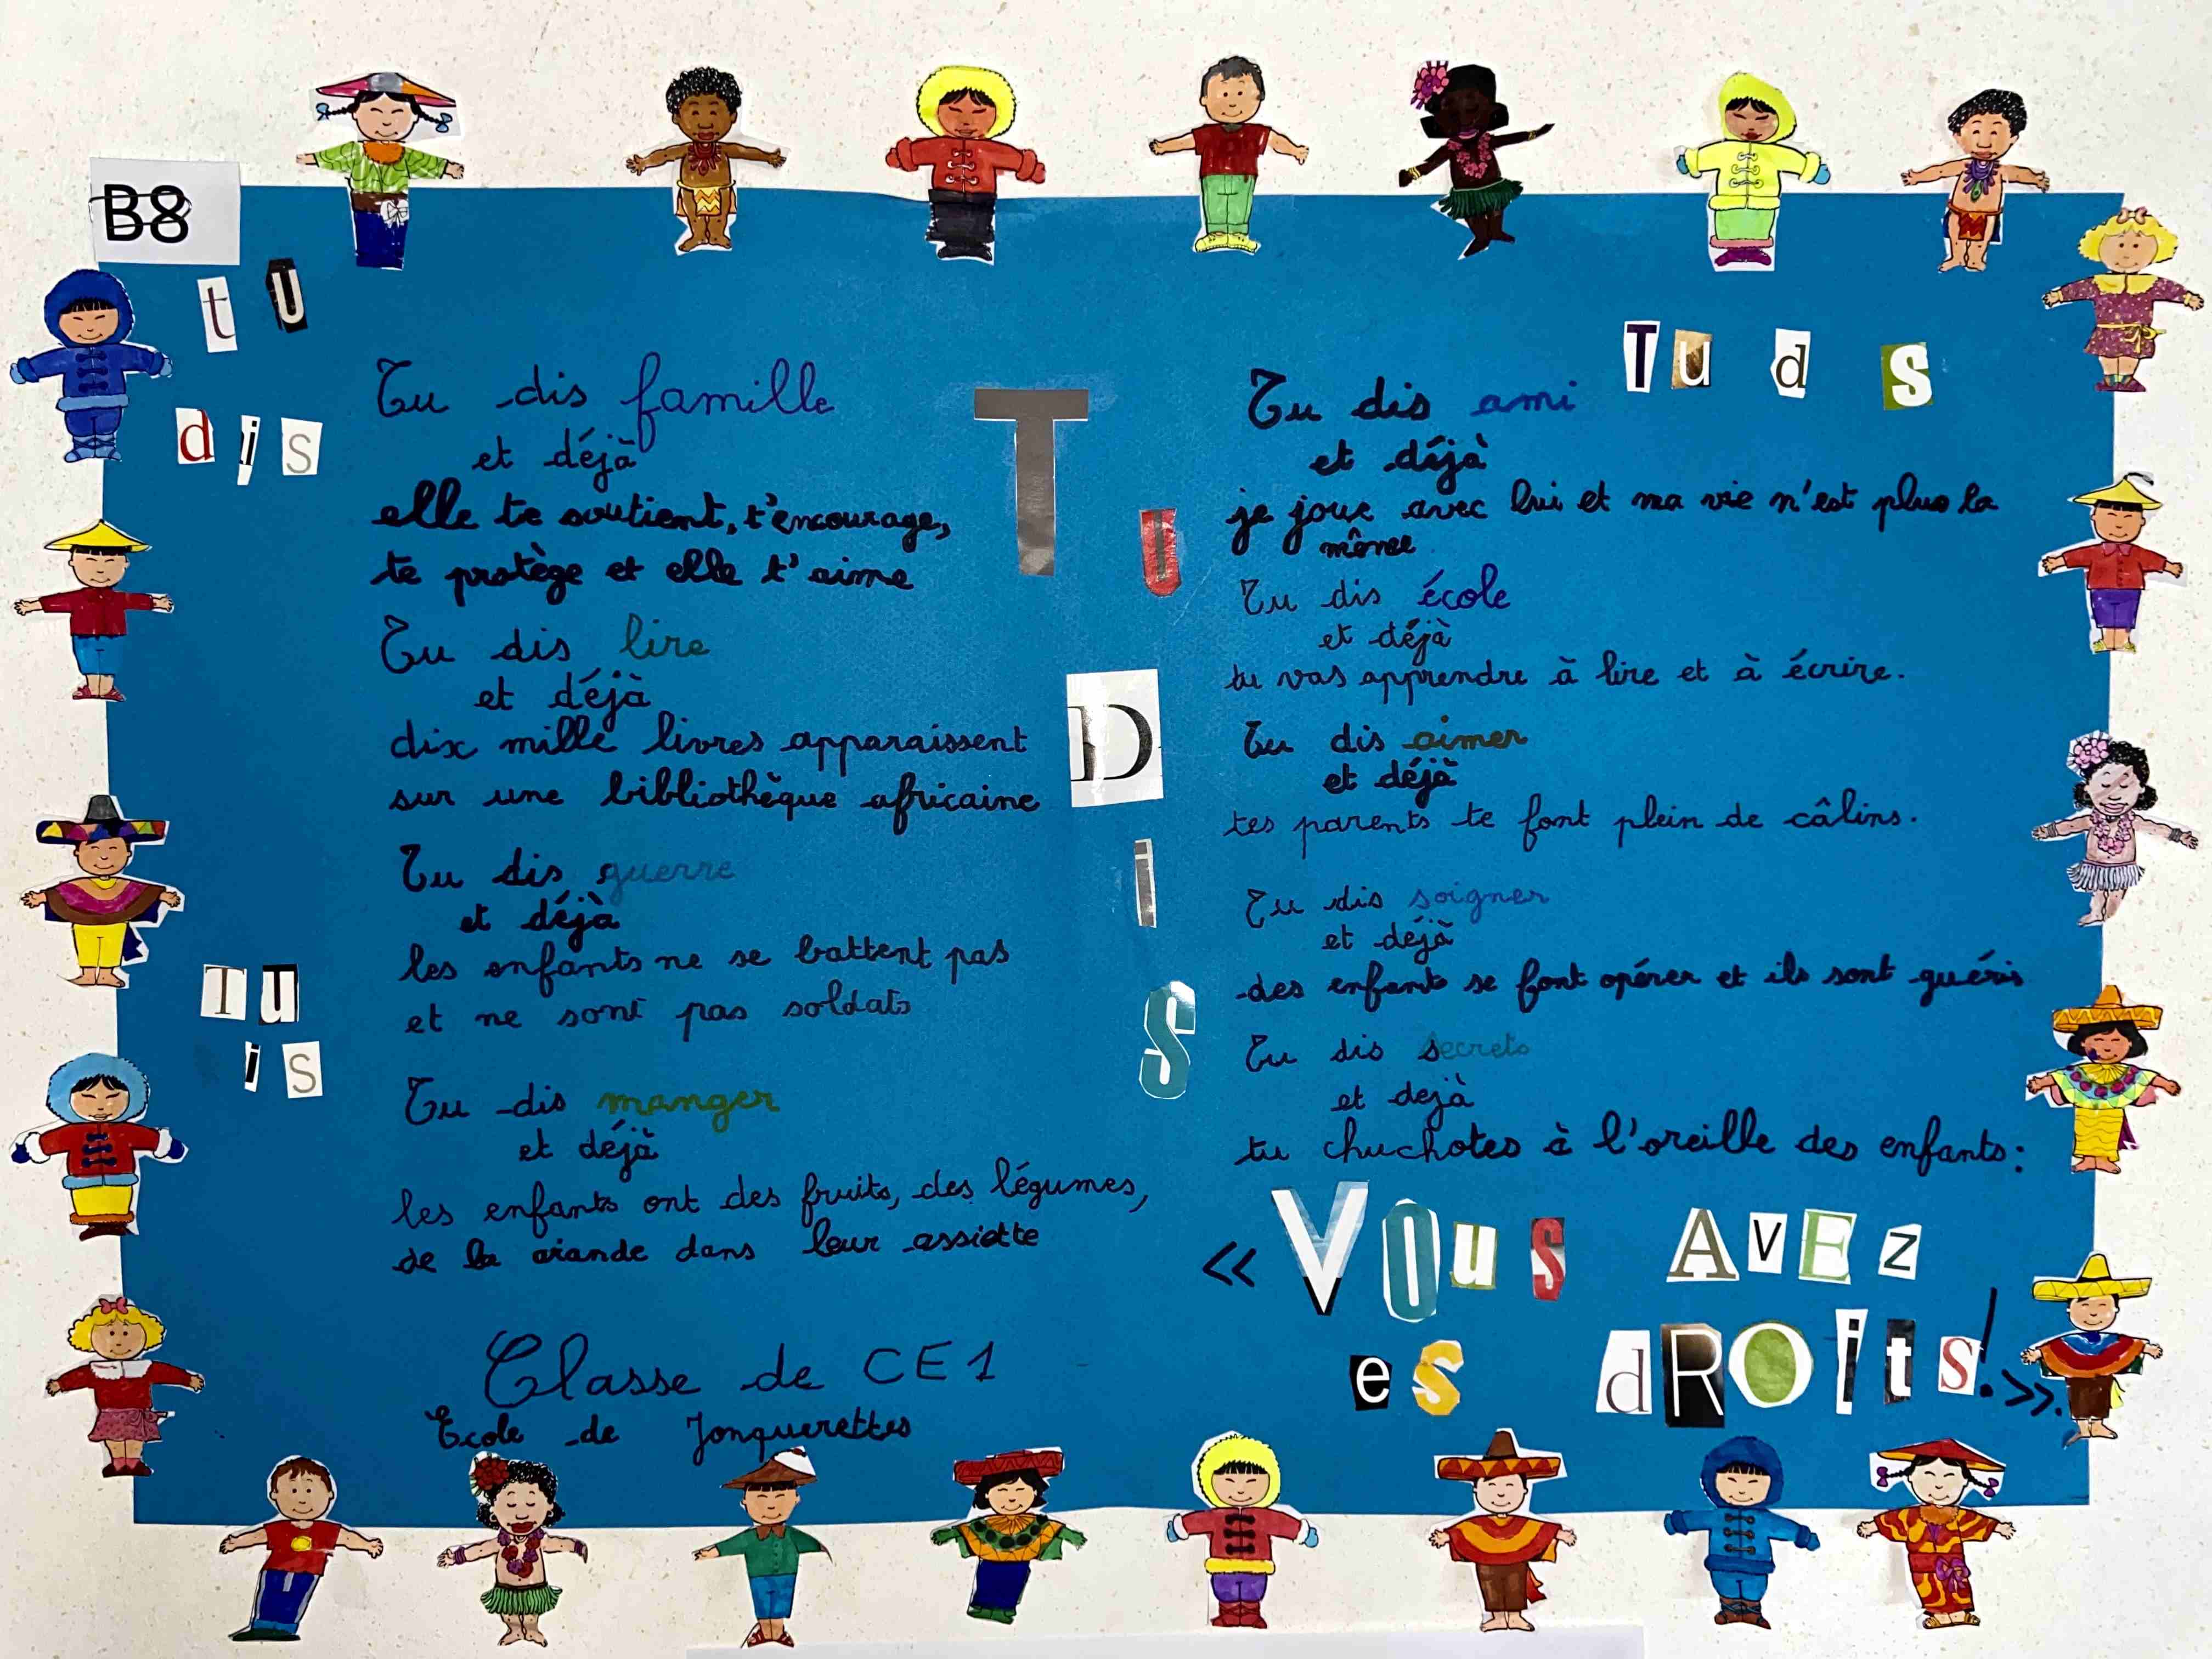 B8
tu
dis
Tu dis famille
et déjà
elle te soutient, t'encourage,
te protège et elle t'aime
Tu dis lire
et déjà
dix mille livres apparaissent
sur une bibliothèque africaine
Tu dis guerre
et déjà
les enfants ne se battent pas
et ne sont pas soldats
TU
is
Tu dis manger
et déjà
les enfants ont des fruits, des légumes,
de la viande dans leur assiette
Classe de CE1
Ecole de Jonquerettes
T
U
D
i
S
Tu d s
Tu dis ami
et déjà
je joue avec lui et ma vie n'est plus la
même
Tu dis école
et déjà
tu vas apprendre à lire et à écrire.
Tu dis aimer
et déjà
tes parents te font plein de câlins.
Tu dis soigner
et déjà
des enfants se font opérer et ils sont guéris
Tu dis secrets
et dejà
tu chuchotes à l'oreille des enfants:
« VOuS AvEz
es dROits! ».